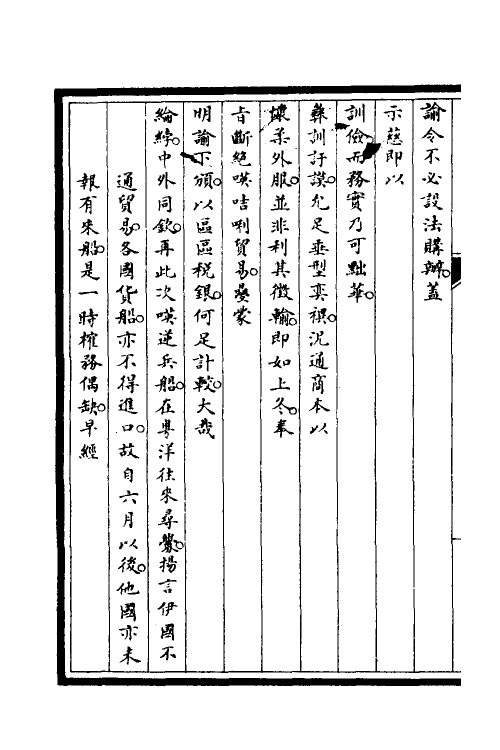 諭令不必設法購辦。蓋
示慈即以
訓儉而務實乃可黜華。
彝訓訏謨。允足垂型奕禩。況通商本以
懷柔外服。並非利其徵輸。即如上冬。奉
旨斷絕𠸄咭唎貿易。疊蒙
明諭下頒。以區區稅銀。何足計較。大哉
綸綍。中外同欽。再此次𠸄逆兵船。在粵洋往來尋釁。揚言伊國不
通貿易。各國貨船。亦不得進口。故自六月以後。他國亦未
報有來船。是一時榷務偶缺。早經